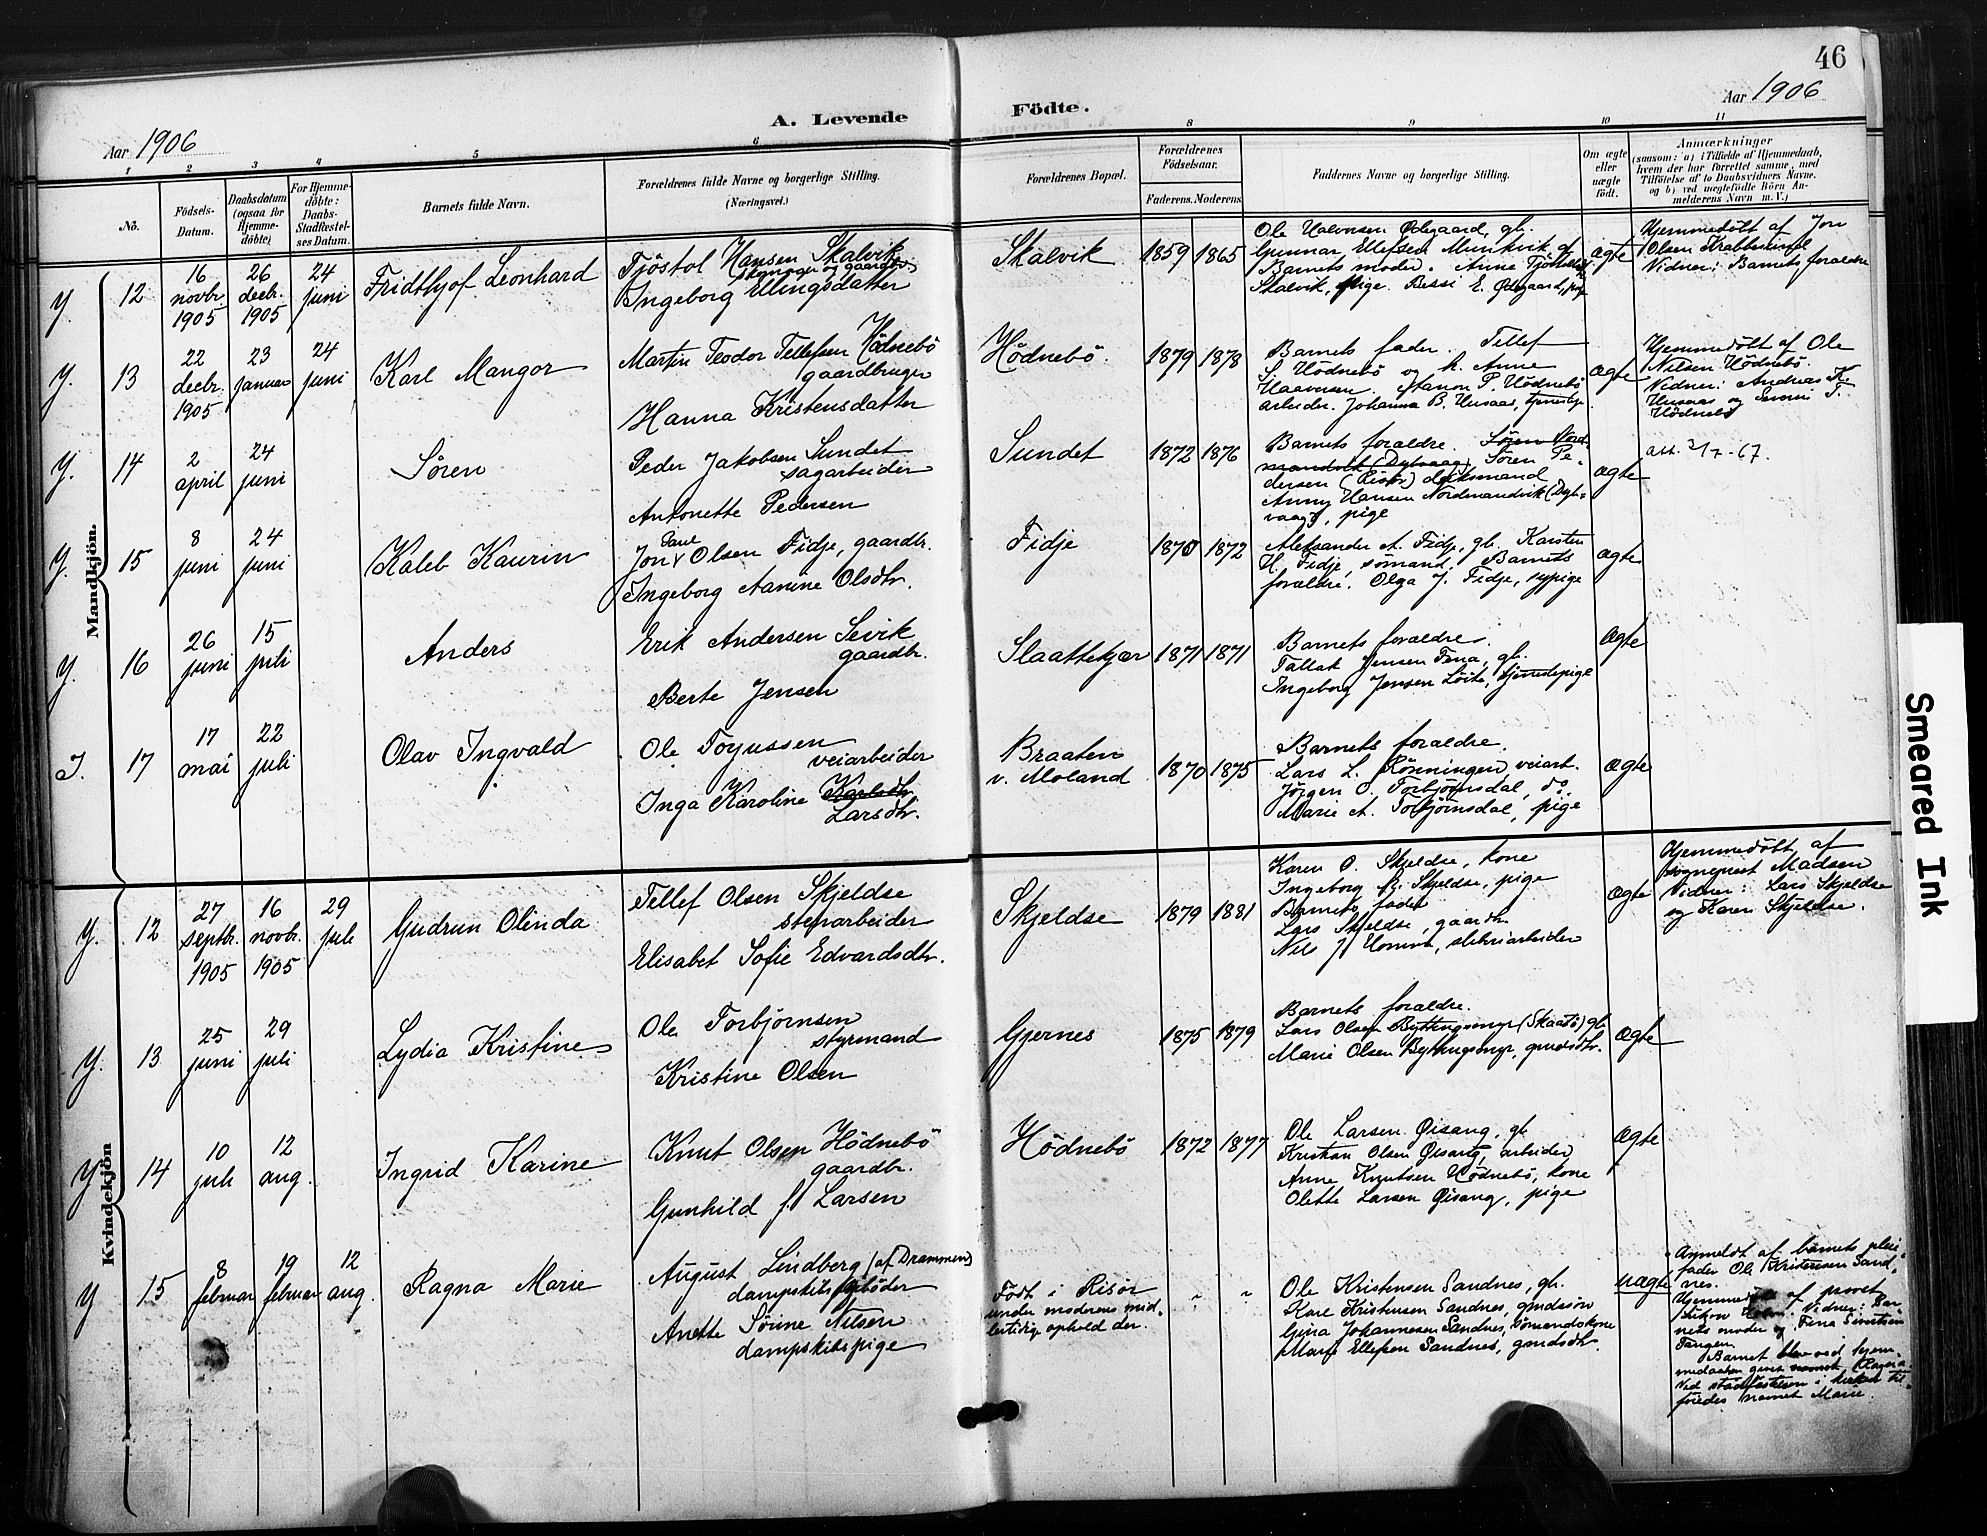 46
Aar 1906
A. Levende Födte.
Aar 1906
1 2 3 4 5 6 8 9 10 11
No.
Födsels-
Datum.
Daabsdatum
(ogsaa for
Hjemme-
döbte)
For Hjemme-
döbte:
Daabs-
Stadfæstel-
ses Datum.
Barnets fulde Navn.
Forældrenes fulde Navne og borgerlige Stilling.
(Næringsvei.)
Forældrenes Bopæl.
Forældrenes
Födselsaar.
Faderens. Moderens.
Faddernes Navne og borgerlige Stilling.
Om ægte
eller
uægte
födt.
Anmærkninger
(saasom: a) i Tilfælde af Hjemmedaab,
hvem der har forrettet samme, med
Tilföielse af to Daabsvidners Navne.
og b) ved uægtefödte Börn An-
melderens Navn m. V.)
Mandkjön.
Y. 12
16 novbr. 1905
26 decbr. 1905
24 juni
Fridthjof Leonhard
Tjöstol Hansen Skalvik
skomager og gaardbr.
Ingeborg Ellingsdatter
Skalvik
1859 1865
Ole Halvorsen Ödegaard, gb.
Gunnar Ellefsen Munkvik gb
Barnets moder. Anne Tjöstolsd.
Skalvik, pige. Bessi E. Ödegaard, pige
ægte
Hjemmedöbt af Jon
Olsen Krabbesund
Vidner: Barnets forældre
Y. 13
22 decbr. 1905
23 januar
24 juni
Karl Mangor
Martin Teodor Tellefsen Hödnebö
gaardbruger
Hanna Kristensdatter
Hödnebö.
1879 1878
Barnets fader. Tellef
S. Hödnebö og h. Anne
Haavorsen. P. Hödnebö
arbeider. Johanna B. Husaas, tjenestep.
ægte
Hjemmedöbt af Ole
Nilsen Hödnebö.
Vidner: Andreas K.
Husaas og Severin T.
Hödnebö
Y. 14
2 april
24 juni
Sören
Peder Jakobsen Sundet
sagarbeider
Antonette Pedersen
Sundet
1872 1876
Barnets forældre. Sören Nord-
mandvik (Dybvaag) Sören Pe-
dersen (Risör) dæksmand
Anny Hansen Nordmandvik (Dyb-
vaag), pige
ægte
att. 3/7-67.
Y. 15
8 juni
24 juni
Kaleb Kaurin
Paul
Jon v Olsen Fidje, gaardbr.
Ingeborg Aanine Olsdtr.
Fidje
1870 1872
Aleksander A. Fidje, gb. Karsten
H. Fidje, sömand. Barnets
forældre. Olga J. Fidje, sypige
ægte
Y. 16
26 juni
15 juli
Anders
Erik Andersen Sevik
gaardbr.
Berte Jensen
Slaattekjær
1871 1871
Barnets forældre.
Tallak Jensen Fena, gb.
Ingeborg Jensen Löite, tjenestepige
ægte
J. 17
17 mai
22 juli
Olav Ingvald
Ole Torjussen
veiarbeider
Inga Karoline Karlsdtr.
Larsdtr.
Braaten
v. Moland
1870 1875
Barnets forældre.
Lars L. Rönningen, veiarb.
Jörgen O. Torbjörnsdal, do.
Marie A. Torbjörnsdal, pige
ægte
Kvindekjön
Y. 12
27 septbr. 1905
16 novbr. 1905
29 juli
Gudrun Olinda
Tellef Olsen Skjeldse
stenarbeider
Elisabet Sofie Edvardsdtr.
Skjeldse
1879 1881
Karen O. Skjeldse, kone
Ingeborg Skjeldse, pige
Barnets fader
Lars Skjeldse, gaardbr.
Nils J. sliberiarbeider
ægte
Hjemmedöbt af
sogneprest Madsen
Vidner: Lars Skjeldse
og Karen Skjeldse.
Y. 13
25 juni
29 juli
Lydia Kristine
Ole Torbjörnsen
styrmand
Kristine Olsen
Gjernes
1875 1879
Barnets forældre.
Lars Olsen Byttingsmyr (Skaatö) gb.
Marie Olsen Byttingsmyr, gmdsdtr.
ægte
Y 14
10 juli
12 aug.
Ingrid Karine
Knut Olsen Hödnebö
gaardbr.
Gunhild f. Larsen
Hödnebö
1872 1877
Ole Larsen Öisang, gb
Kristian Olsen Öisang, arbeider
Anne Knutsen Hödnebö, kone
Olette Larsen Öisang, pige
ægte
Y 15
8 februar
19 februar
12 aug.
Ragna Marie
August Lindberg (af Drammen)
dampskibsfyrböder
Anette Sörine Nilsen
dampskibspige
Födt i Risör
under moderens mid-
lertidige ophold der.
" "
Ole Kristensen Sandnes, gb.
Karl Kristensen Sandnes, gmdsön
Gina Johannesen Sandnes, sömandskone
Marie Ellefsen Sandnes, gmdsdtr.
uægte
Anmeldt af barnets pleie-
fader Ole Kristensen Sand-
nes.
Hjemmedöbt af provst
Vidner: Bar-
nets moder og Tena Sivertsen
Tangen.
Barnet blev ved hjem-
medaaben givet navnet Ragna.
Ved stadfæstelsen i kirken til-
föiedes navnet Marie.
Smeared Ink